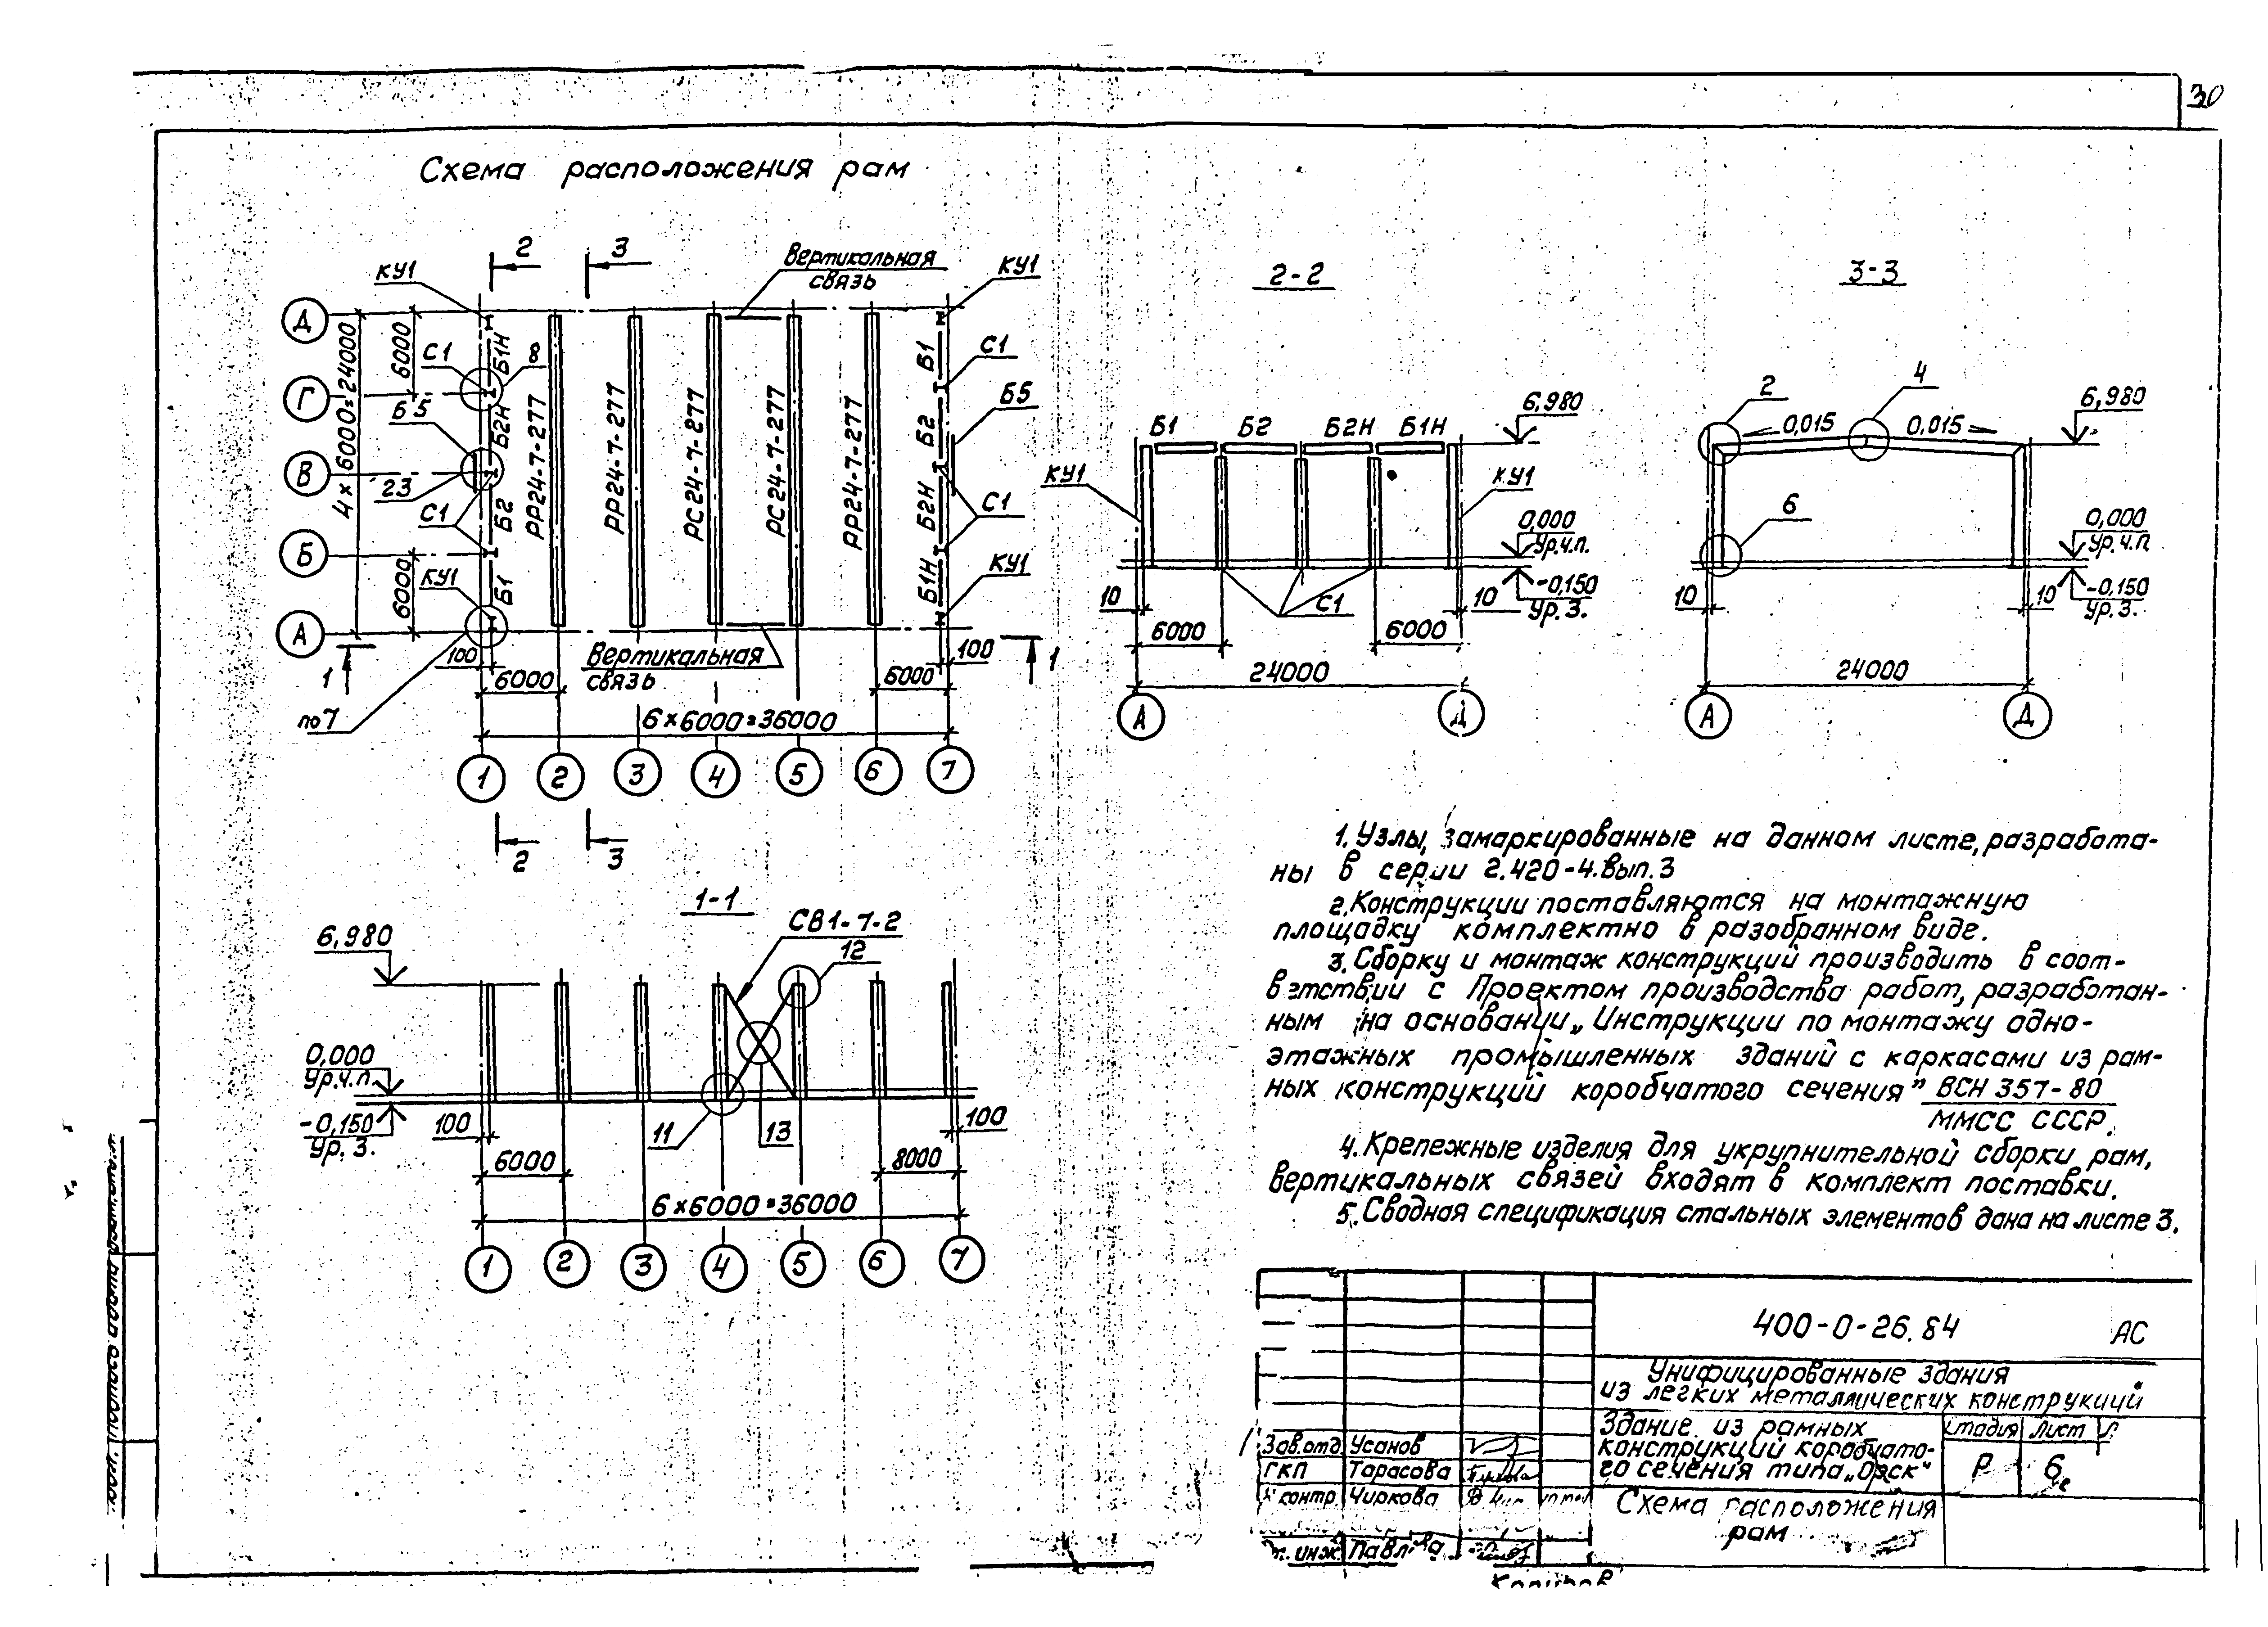 30
Схема расположения рам
2
3
КУ1
Вертикальная
связь
КУ1
Д
Г
В
Б
А
4×6000=24000
6000
6000
С1
Б1Н
8
Б5
Б2Н
23
С1
Б2
КУ1
Б1
РР24-7-277
РР24-7-277
РС24-7-277
РС24-7-277
РР24-7-277
Б1
С1
Б5
Б2
Б2Н
С1
Б1Н
КУ1
1
100
Вертикальная
связь
100
1
6000
6000
по 7
6×6000=36000
1
2
3
4
5
6
7
2
3
1-1
6,980
СВ1-7-2
12
0,000
Ур.ч.п.
-0,150
Ур. З.
100
11
13
100
6000
8000
6×6000=36000
1
2
3
4
5
6
7
2-2
Б1
Б2
Б2Н
Б1Н
6,980
КУ1
КУ1
0,000
Ур.ч.п.
-0,150
Ур. З.
10
С1
10
6000
6000
24000
А
Д
3-3
2
4
6,980
0,015
0,015
6
0,000
Ур.ч.п.
-0,150
Ур. З.
10
10
24000
А
Д
1. Узлы, замаркированные на данном листе, разработа-
ны в серии 2.420-4.Вып.3
2. Конструкции поставляются на монтажную
площадку комплектно в разобранном виде.
3. Сборку и монтаж конструкций производить в соот-
ветствии с Проектом производства работ, разработан-
ным на основании „Инструкции по монтажу одно-
этажных промышленных зданий с каркасами из рам-
ных конструкций коробчатого сечения" ВСН 357-80
ММСС СССР.
4. Крепежные изделия для укрупнительной сборки рам,
вертикальных связей входят в комплект поставки.
5. Сводная спецификация стальных элементов дана на листе 3.
400-0-26.84 АС
Унифицированные здания
из легких металлических конструкций
Здание из рамных
конструкций коробчато-
го сечения типа „Орск"
Стадия Лист
Р 6
Схема расположения
рам
Зав.отд. Усанов
ГКП Тарасова
Н контр. Чиркова
инж.